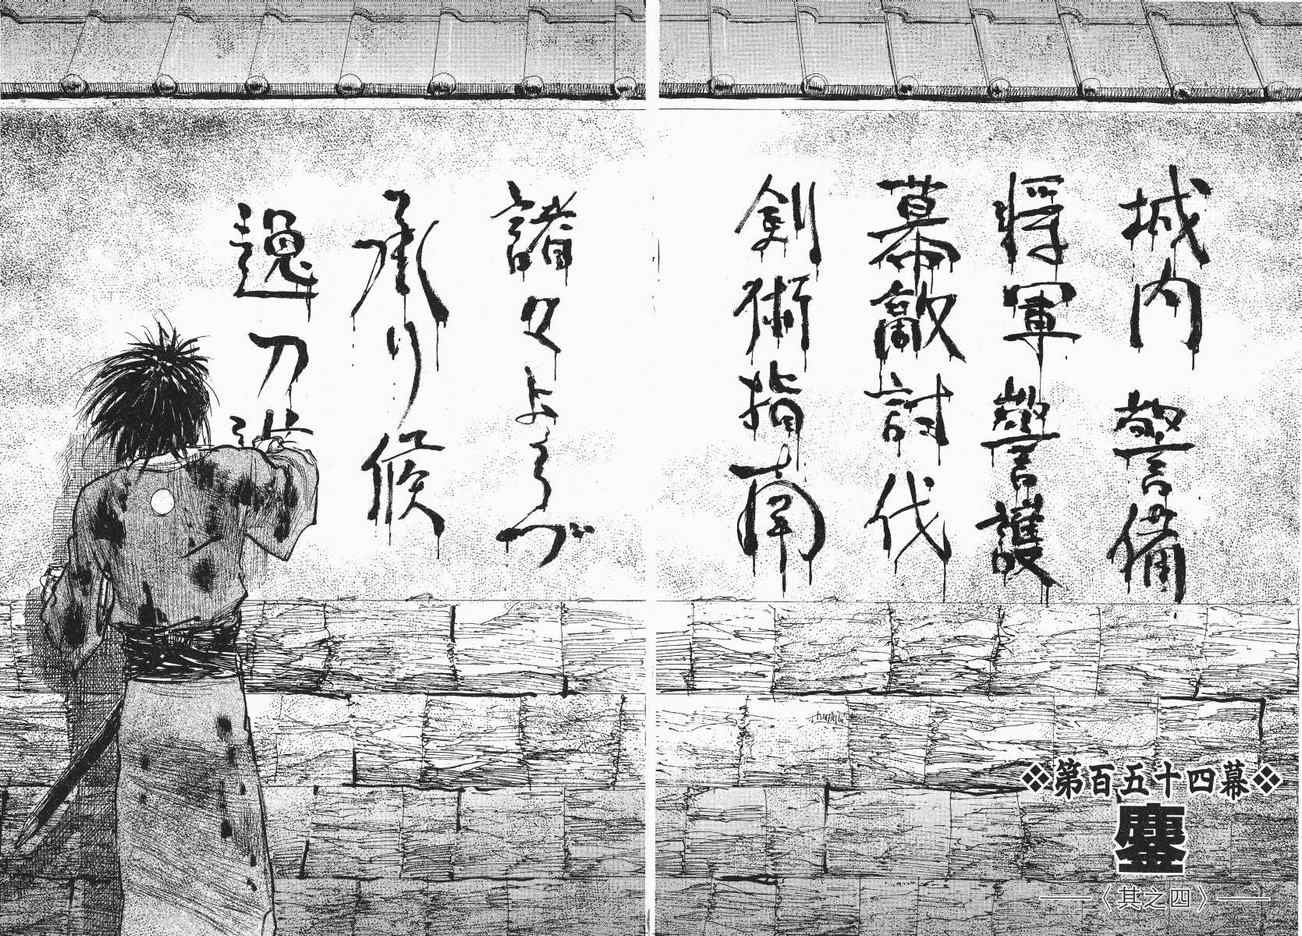 城内警備
将軍警護
幕敵討伐
剣術指南
諸々よろづ
承り候
逸刀
❖第百五十四幕❖
鏖
《其之四》